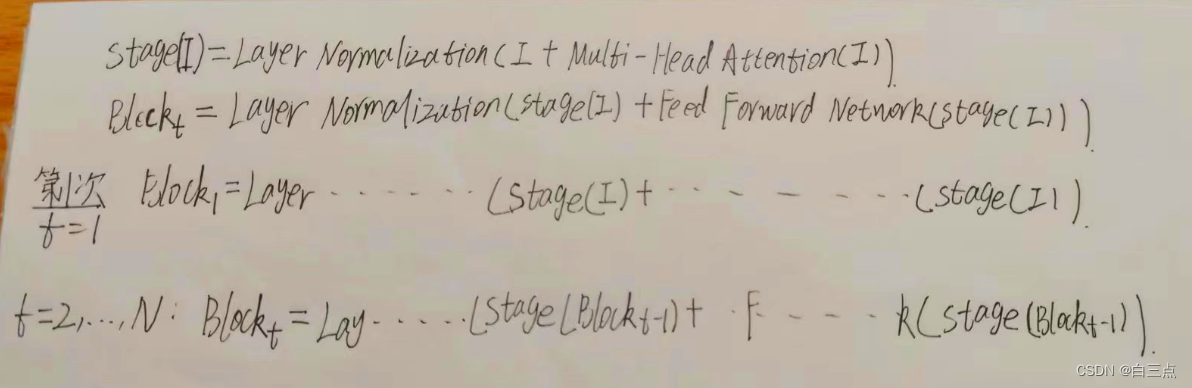 Stage(I)=Layer Normalization(I + Multi-Head Attention(I)).
Block_t = Layer Normalization(stage(I) + Feed Forward Network(stage(I))).
第1次 Block_1=Layer.......(Stage(I)+.......(stage(I)).
t=1
t=2,...,N: Block_t=Lay.....(Stage(Block_t-1)+ F.....k(stage(Block_t-1)).
CSDN @白三点